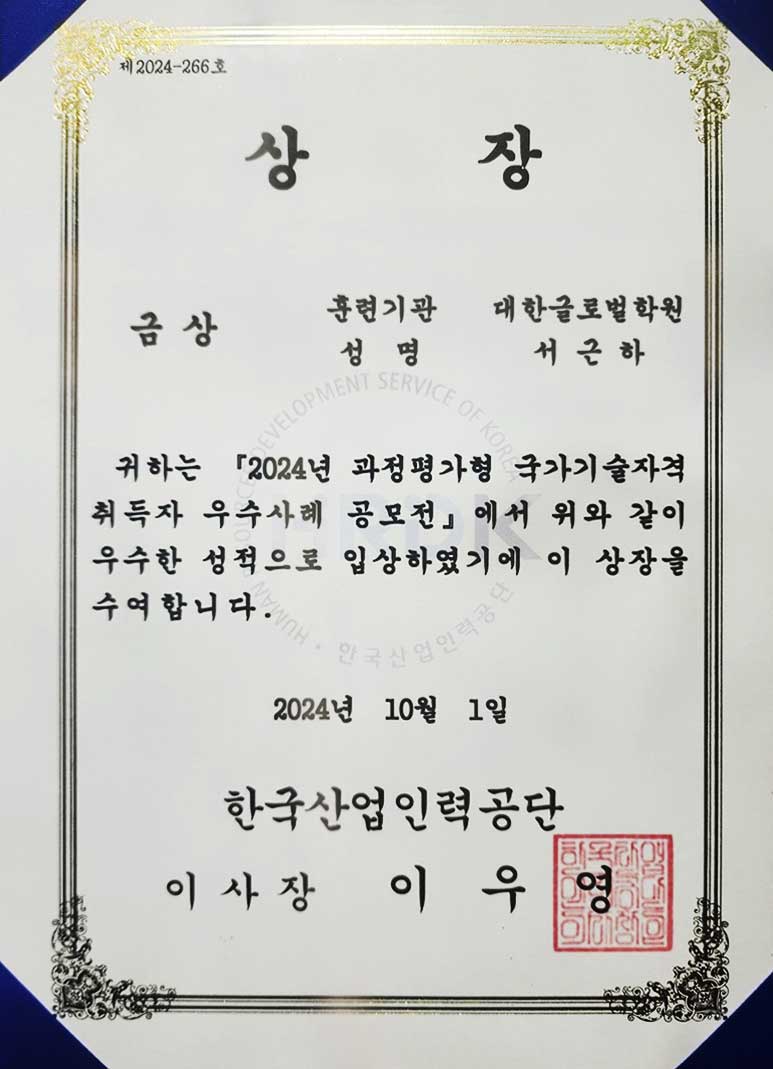 제2024-266호
상 장
금 상
훈련기관 대한글로벌학원
성 명 서 근 하
귀하는 『2024년 과정평가형 국가기술자격
취득자 우수사례 공모전』에서 위와 같이
우수한 성적으로 입상하였기에 이 상장을
수여합니다.
HUMAN RESOURCES DEVELOPMENT SERVICE OF KOREA
HRDK
한국산업인력공단
2024년 10월 1일
한국산업인력공단
이 사 장 이 우 영